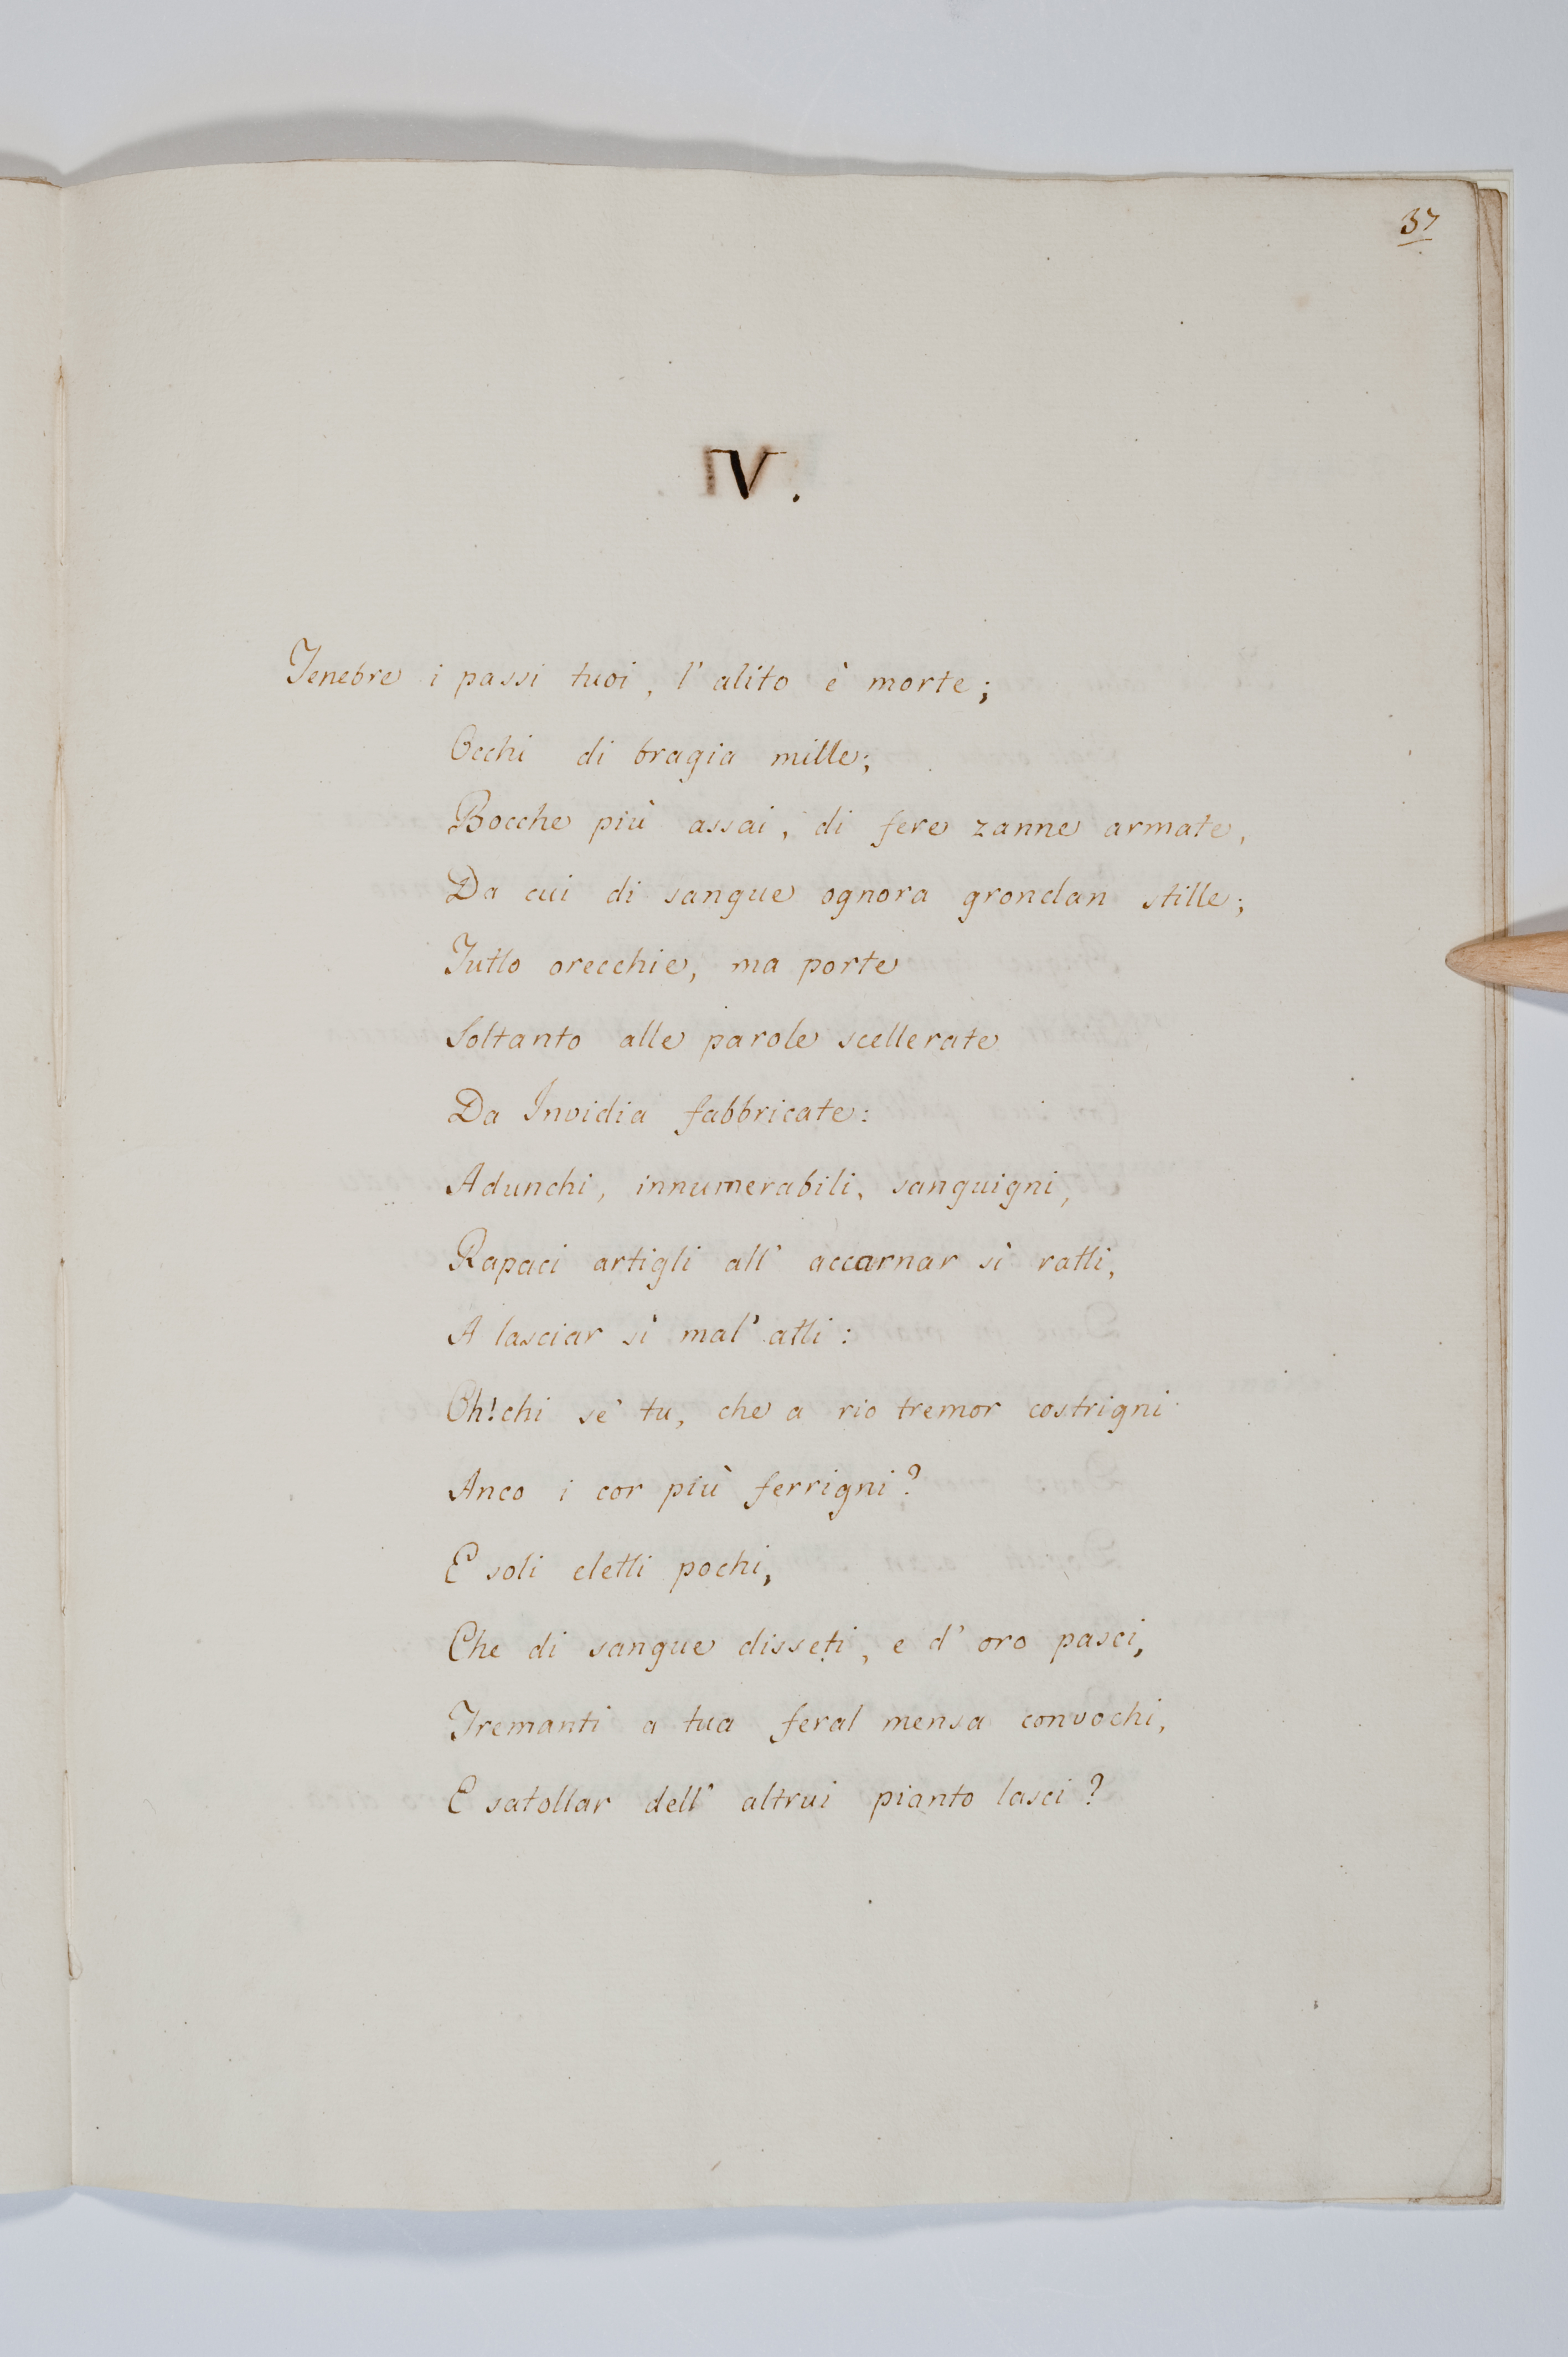 37
IV.
Tenebre i passi tuoi, l' alito è morte;
Occhi di bragia mille;
Bocche più assai, di fere zanne armate,
Da cui di sangue ognora grondan stille;
Tutto orecchie, ma porte
Soltanto alle parole scellerate
Da Invidia fabbricate:
Adunchi, innumerabili, sanguigni,
Rapaci artigli all' accarnar sì ratti,
A lasciar sì mal' atti:
Oh! chi se' tu, che a rio tremor costrigni
Anco i cor più ferrigni?
E soli eletti pochi,
Che di sangue disseti, e d' oro pasci,
Tremanti a tua feral mensa convochi,
E satollar dell' altrui pianto lasci?